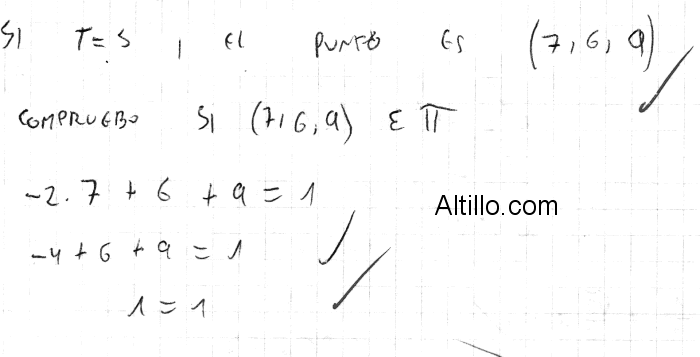 SI T=5 , EL PUNTO ES (7,6,9)
COMPRUEBO SI (7,6,9) ε π
-2.7 + 6 + 9 = 1
Altillo.com
-4+6+9 = 1
1 = 1